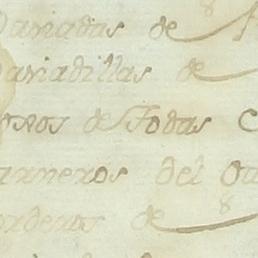 Variadas de
Variadillas de
osos de Todas C
arneros del Ga
orderos de